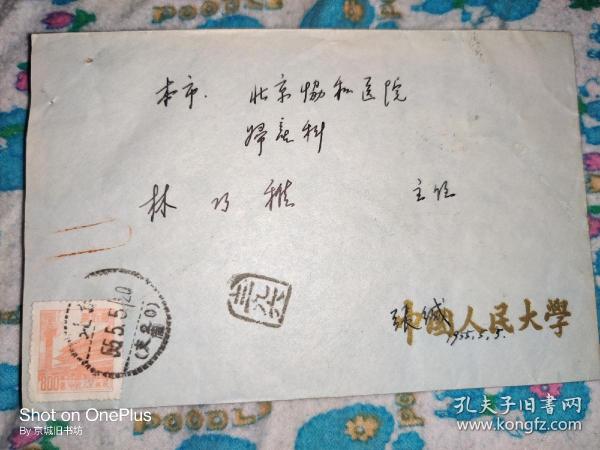 本市. 北京协和医院
婦產科
林巧稚 主任
中國人民大學
張缄 1955.5.5.
55.5.5
800
Shot on OnePlus
By 京城旧书坊
孔夫子旧书网
www.kongfz.com
POODLE